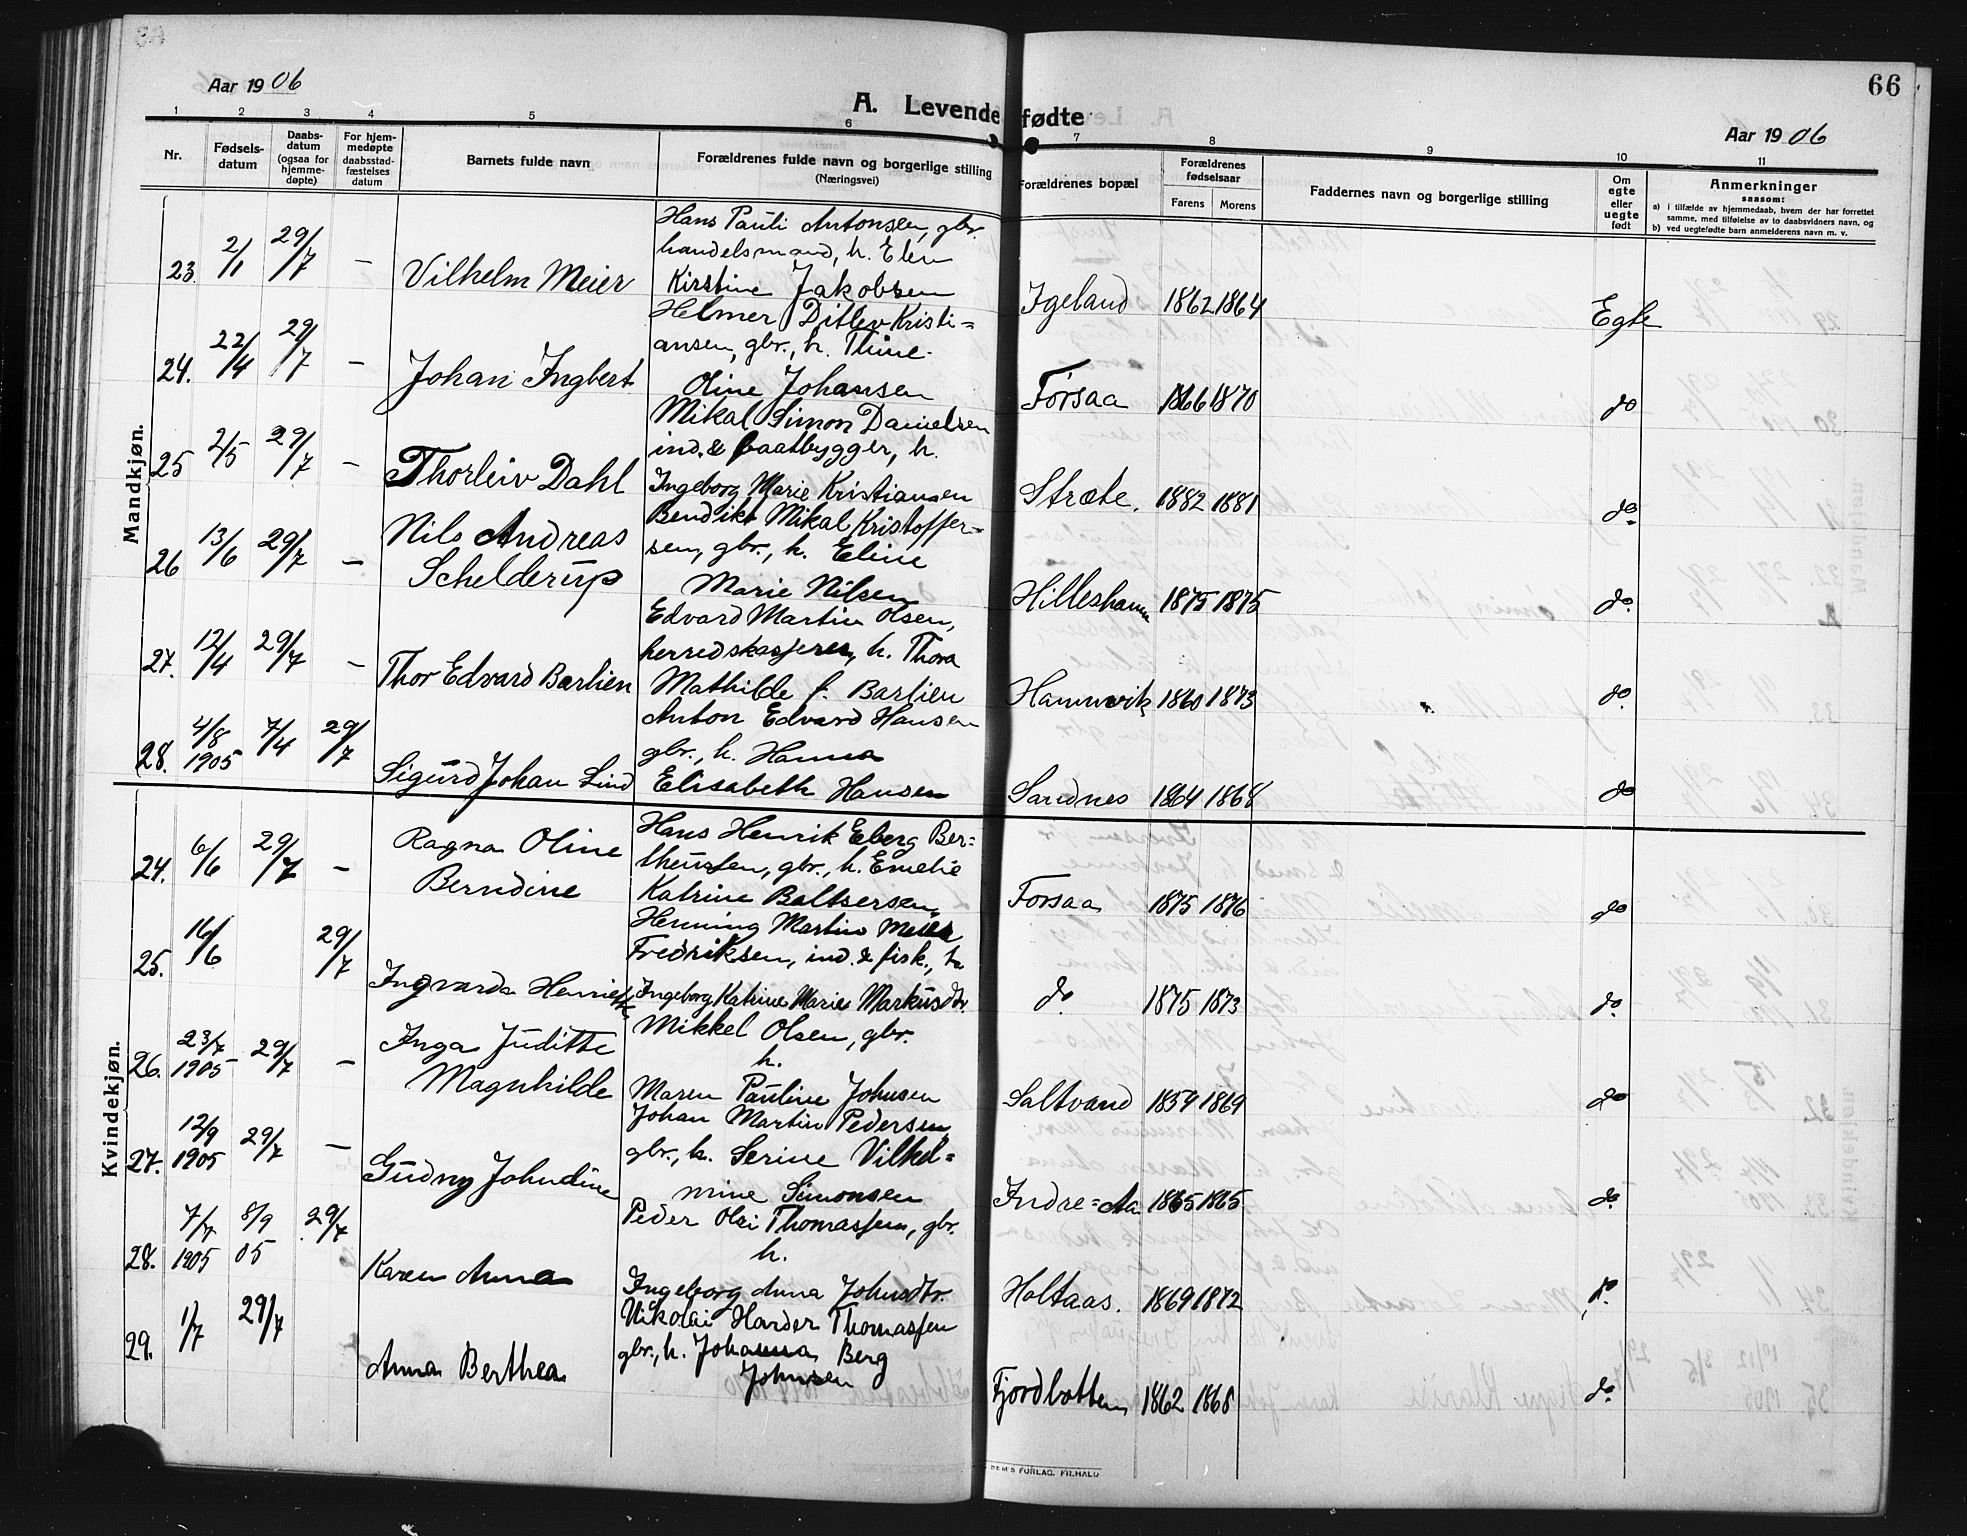 66
Aar 1906
A. Levendefødte
Aar 1906
1 2 3 4 5 6 7 8 9 10 11
Nr.
Fødsels-
datum
Daabs-
datum
(ogsaa for
hjemme-
døpte)
For hjem-
medøpte
daabsstad-
fæstelses
datum
Barnets fulde navn
Forældrenes fulde navn og borgerlige stilling
(Næringsvei)
Forældrenes bopæl
Forældrenes
fødselsaar
Farens Morens
Faddernes navn og borgerlige stilling
Om
egte
eller
uegte
født
Anmerkninger
saasom:
a) i tilfælde av hjemmedaab, hvem der har forrettet
samme, med tilføielse av to daabsvidners navn, og
b) ved uegtefødte barn anmelderens navn m. v.
Mandkjøn.
Hans Pauli Antonsen, gbr.
handelsmand, h. Elen
23. 2/1 29/7 – Vilhelm Meier Kirstine Jakobsen Igeland 1862 1864 Egte
Helmer Ditlev Kristi=
ansen, gbr., h. Thine
24. 22/4 29/7 – Johan Ingbert Oline Johansen Forsaa 1866 1870 do
Mikal Simon Danielsen
ind. & baatbygger, h.
25 2/5 29/7 – Thorleiv Dahl Ingeborg Marie Kristiansen Stræte. 1882 1881 do.
Nils Andreas Bendikt Mikal Kristoffer=
sen, gbr., h. Eline
26 13/6 29/7 – Schelderup Marie Nilsen Hilleshamn 1875 1875 do.
Edvard Martin Olsen,
herredskasserer, h. Thora
27. 12/4 29/7 – Thor Edvard Barlien Mathilde f. Barlien Hamnvik 1860 1873 do.
Anton Edvard Hansen
gbr., h. Hanna
28. 4/8 1905 7/4 29/7 Sigurd Johan Lind Elisabeth Hansen Sandnes 1864 1868 do
Kvindekjøn.
Ragna Oline Hans Henrik Eberg Ber=
theussen, gbr., h. Emelie
24. 6/6 29/7 – Berndine Katrine Baltsersen Forsaa 1875 1876 do
Henning Martin Meier
Fredriksen, ind. & fisk., h
25. 16/6 29/7 Ingvarda Ingeborg Katrine Marie Markusdtr. do. 1875 1873 do.
Inga Juditte Mikkel Olsen, gbr.
h.
26. 23/7 1905 29/7 – Magnhilde Maren Pauline Johnsen Saltvand 1859 1869 do
Johan Martin Pedersen
gbr., h. Serine Vilhel=
27. 12/9 1905 29/7 – Gudny Johndine mine Simonsen Indre=Aa 1865 1865 do.
Peder Olai Thomassen, gbr.
h.
28. 7/7 1905 8/9 05 29/7 Karen Anna Ingeborg Anna Johnsdtr. Holtaas. 1869 1872 do.
Nikolai Harder Thomassen
gbr., h. Johanna Berg
29. 1/7 29/7 Anna Berthea Johnsen Fjordbotten 1862 1868 do.
FORLAG, FR.HALD